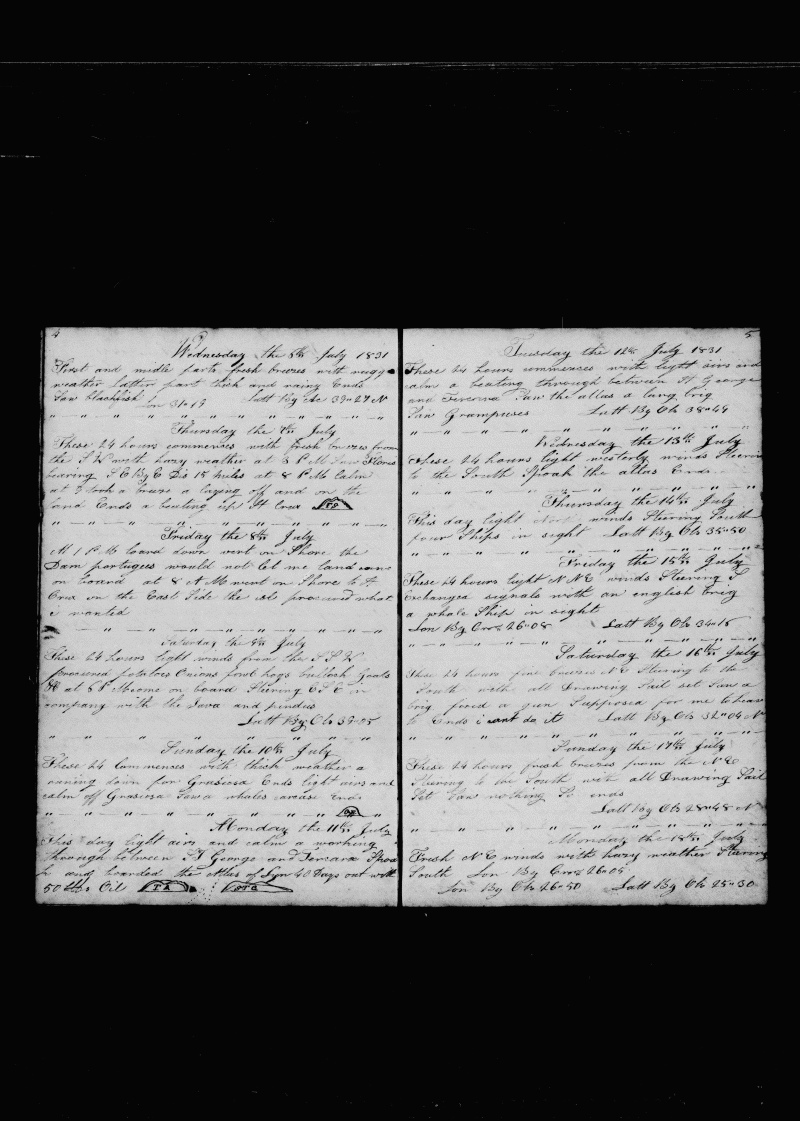 4
Wednesday the 6th July 1831
First and midle parts fresh breezes with rugg
weather latter part thick and rainy Ends
Saw blackfish Lon 31=19 Latt By Ac 39=27 N
Thursday the 7th July
These 24 hours commences with fresh breezes from
the S W with hazy weather at 8 P M Saw Flores
bearing S E By E Dis 15 miles at 8 P M Calm
at 3 took a breeze a laying off and on the
land Ends a beating up St Crux
Friday the 8th July
At 1 P M board down went on Shore the
Dam portugees would not let me land came
on board at 8 A M went on Shore to St
Crux on the East Side the procured what
i wanted
Saturday the 9th July
These 24 hours light winds from the S S W
procured potatoes Onions fowl hogs bullock Goats
&c at 6 P M come on board Steering E S E in
company with the Java and pindus
Latt By Ob 39=05
Sunday the 10th July
These 24 Commenses with thick weather a
runing down for Grasiosa Ends light airs and
calm off Grasiosa Saw a whales Ends
Monday the 11th July
This day light airs and calm a working
through between St George and Tercara Spoa
k and boarded the Atlas of Lyn 40 Days out with
50 bbls Oil
5
Tuesday the 12th July 1831
These 24 hours commences with light airs and
calm a beating through between St George
and Tercerra Saw the atlas a larg brig
Saw Grampuses Latt By Ob 38=49
Wednesday the 13th July
These 24 hours light westerly winds Steering
to the South Spoak the atlas Ends
Thursday the 14th July
This day light winds Steering South
four Ships in sight Latt By Ob 35=50
Friday the 15th July
These 24 hours light N N E winds Steering S
Exchanged signals with an english brig
a whale Ship in sight
Lon By Cro 26=08 Latt By Ob 34=18
Saturday the 16th July
These 24 hours fine breezes N E Steering to the
South with all Drawing Sail set Saw a
brig fired a gun Supposed for me to heav
to Ends i cant do it Latt By Ob 32=04 N
Sunday the 17th July
These 24 hours fresh breezes from the N E
Steering to the South with all Drawing Sail
Set Saw nothing So ends
Latt By Ob 28=48 N
Monday the 18th July
Fresh N E winds with hazy weather Steering
South Lon By Cro 26=05
Lon By Ob 26=50 Latt By Ob 25=30